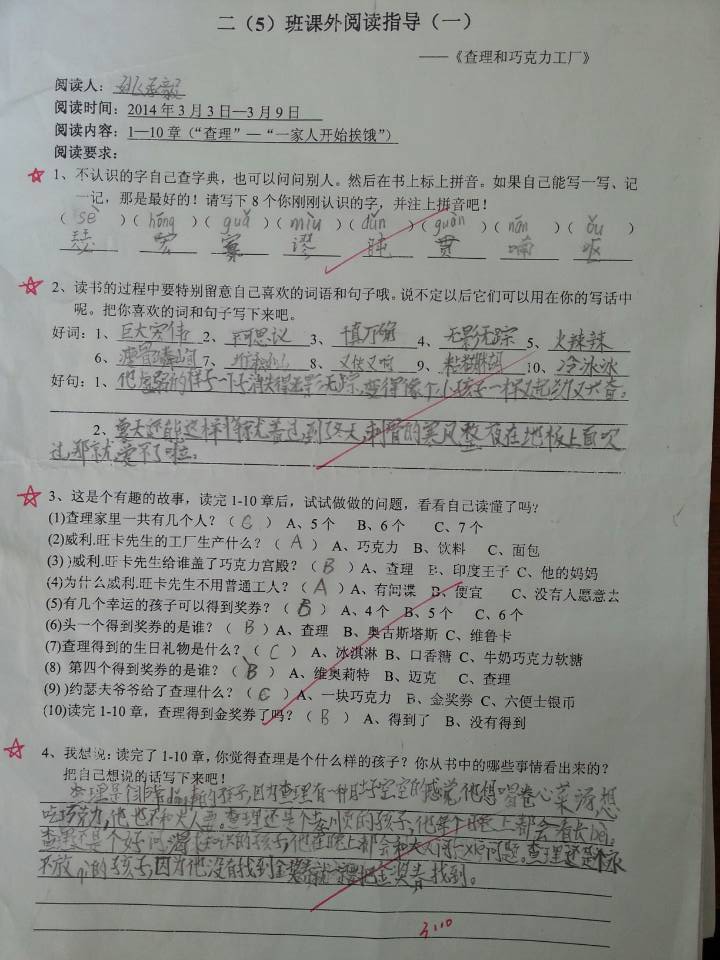 二（5）班课外阅读指导（一）
——《查理和巧克力工厂》
阅读人：
阅读时间：2014年3月3日—3月9日
阅读内容：1—10章（“查理”—“一家人开始挨饿”）
阅读要求：
1、不认识的字自己查字典，也可以问问别人。然后在书上标上拼音。如果自己能写一写、记
一记，那是最好的！请写下8个你刚刚认识的字，并注上拼音吧！
（sè）（hōng）（guǎ）（miù）（dǔn）（guàn）（nán）（ǒu）
瑟 寡 谬 盹 贯 喃 呕
2、读书的过程中要特别留意自己喜欢的词语和句子哦。说不定以后它们可以用在你的写话中
呢。把你喜欢的词和句子写下来吧。
好词：1、巨大宏伟 2、不可思议 3、 4、无影无踪 5、火辣辣
6、 7、 8、 9、 10、冷冰冰
好句：1、他虚弱的样子一下子消失得无影无踪，变得像个小孩子一样又
2、夏天还能这样将就着过，到了冬天，刺骨的寒风整夜在地板上面吹
过，那就受不了啦。
3、这是个有趣的故事，读完1-10章后，试试做做的问题，看看自己读懂了吗？
(1)查理家里一共有几个人？（C） A、5个 B、6个 C、7个
(2)威利.旺卡先生的工厂生产什么？（A） A、巧克力 B、饮料 C、面包
(3) )威利.旺卡先生给谁盖了巧克力宫殿？（B）A、查理 B、印度王子 C、他的妈妈
(4)为什么威利.旺卡先生不用普通工人？（A）A、有间谍 B、便宜 C、没有人愿意去
(5)有几个幸运的孩子可以得到奖券？（B） A、4个 B、5个 C、6个
(6)头一个得到奖券的是谁？（B）A、查理 B、奥古斯塔斯 C、维鲁卡
(7)查理得到的生日礼物是什么？（C） A、冰淇淋 B、口香糖 C、牛奶巧克力软糖
(8) 第四个得到奖券的是谁？（B） A、维奥莉特 B、迈克 C、查理
(9) )约瑟夫爷爷给了查理什么？（C）A、一块巧克力 B、金奖劵 C、六便士银币
(10)读完1-10章，查理得到金奖券了吗？（B） A、得到了 B、没有得到
4、我想说：读完了1-10章，你觉得查理是个什么样的孩子？你从书中的哪些事情看出来的？
把自己想说的话写下来吧！
查理是个非常的孩子，因为查理有一种肚子空空的感觉，他想喝卷心菜汤，想
吃巧克力，他也不和大人要。查理还是个孝顺的孩子，他每个晚上都会看长bèi。
查理还是个好问、渴求知识的孩子，他在晚上都会和大人问一xiē问题。查理还是个永
不放qì的孩子，因为他没有找到金奖券就把金奖券找到。
3.10